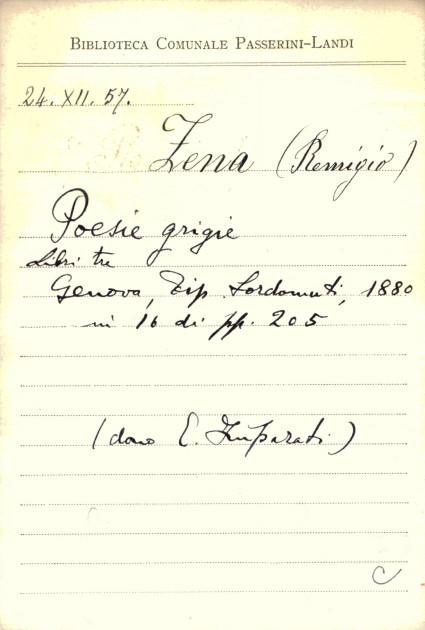 BIBLIOTECA COMUNALE PASSERINI-LANDI
24. XII. 57.
Zena (Remigio)
Poesie grigie
Libri tre
Genova, Tip. Sordomuti, 1880
in 16 di pp. 205
(dono E. Imparati)
C